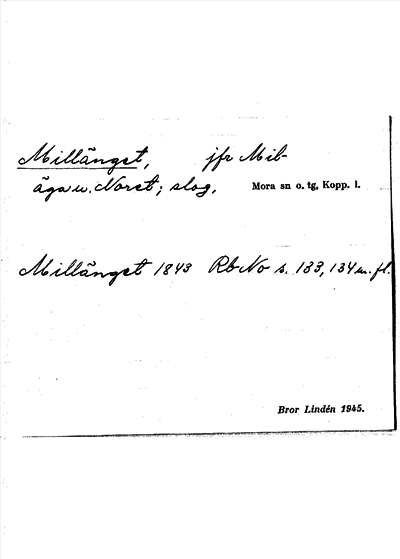 Millänget, jfr Mil-
äga u. Noret; slog, Mora sn o. tg, Kopp. l.
Millänget 1843 Rb No s. 133, 134 m. fl.
Bror Lindén 1945.